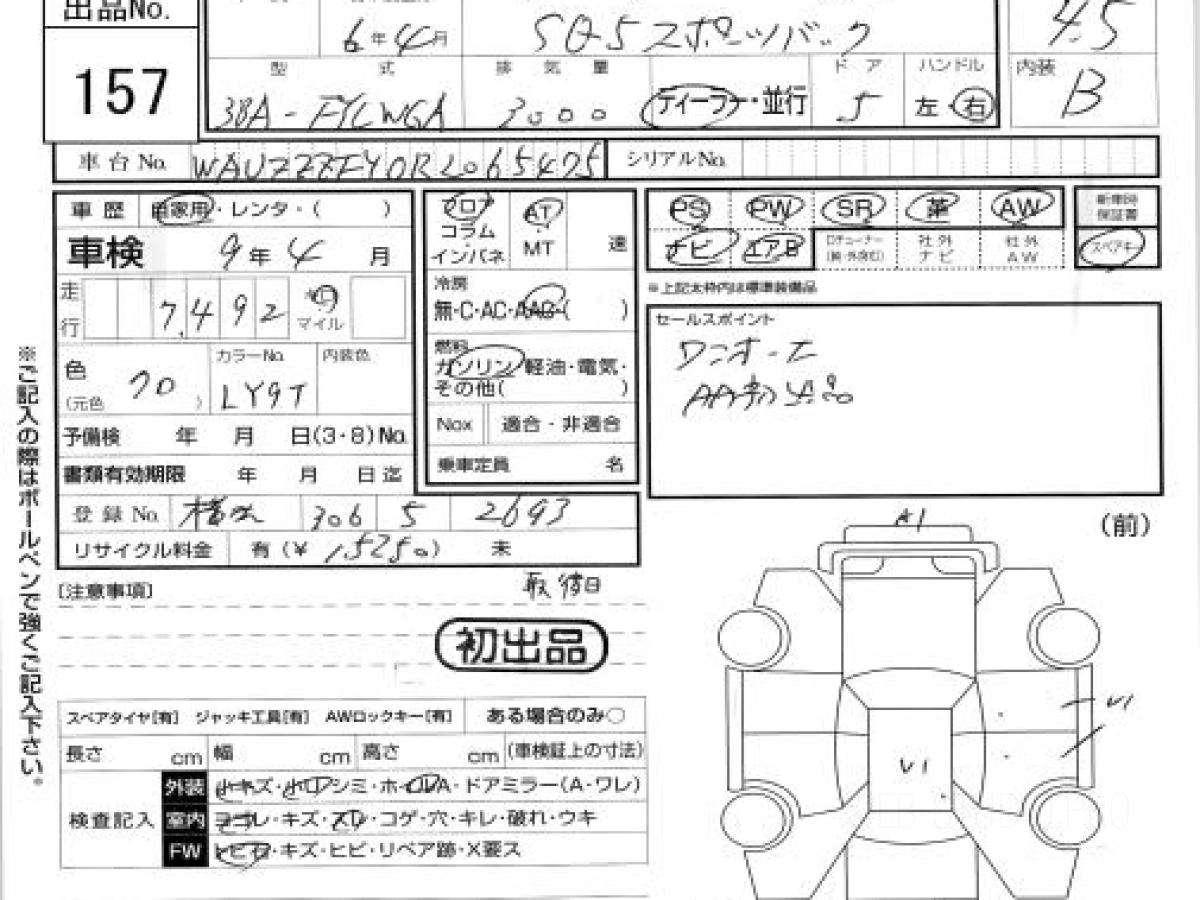 出品No.
157
6年4月
SQ5スポーツバック
4.5
型 式
排 気 量
ド ア
ハンドル
内装
3BA-FYCWGA
3000
ディーラー・並行
5
左・右
B
車台No.
WAUZZZFY0R2065475
シリアルNo.
車 歴
自家用・レンタ・( )
車検
9年4月
走行
7,492
マイル
色
(元色 )
クロ
カラーNo.
LY9T
内装色
予備検 年 月 日(3・8)No.
書類有効期限 年 月 日迄
登録No.
306
5
2693
リサイクル料金
有(¥ 15250)
未
フロア
コラム
インパネ
AT
MT
速
冷房
無・C・AC・AAC・( )
燃料
ガソリン・軽油・電気・
その他( )
Nox
適合・非適合
乗車定員 名
PS
PW
SR
革
AW
新車時
保証書
ナビ
エアB
Dチューナー
社外
ナビ
社外
AW
スペアキー
※上記太枠内は標準装備品
セールスポイント
ワンオーナー
AA初出品
※ご記入の際はボールペンで強くご記入下さい。
[注意事項]
初出品
スペアタイヤ[有] ジャッキ工具[有] AWロックキー[有]
ある場合のみ○
長さ cm
幅 cm
高さ cm
(車検証上の寸法)
検査記入
外装
小キズ・小凹・シミ・ホイールA・ドアミラー(A・ワレ)
室内
ヨゴレ・キズ・スレ・コゲ・穴・キレ・破れ・ウキ
FW
トビ石・キズ・ヒビ・リペア跡・X要ス
(前)
A1
U1
U1